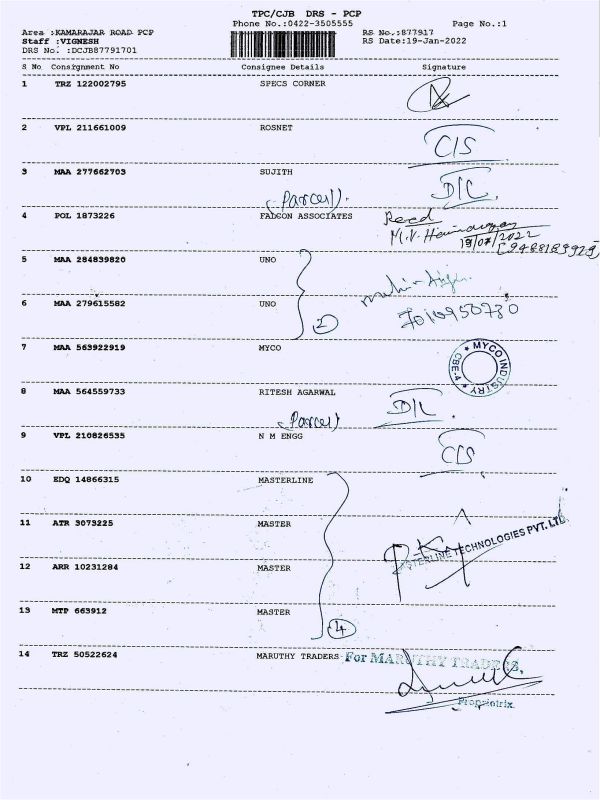 TPC/CJB DRS - PCP
Phone No.:0422-3505555 Page No.:1
Area :KAMARAJAR ROAD PCP RS No.:877917
Staff :VIGNESH RS Date:19-Jan-2022
DRS No. :DCJB87791701
S No Consignment No Consignee Details Signature
1 TRZ 122002795 SPECS CORNER
2 VPL 211661009 ROSNET C/S
3 MAA 277662703 SUJITH D/C
(Parcel).
4 POL 1873226 FALCON ASSOCIATES Recd
5 MAA 284839820 UNO
6 MAA 279615582 UNO
2
7 MAA 563922919 MYCO MYCO INDUSTRY CBE-4
8 MAA 564559733 RITESH AGARWAL D/L
(Parcel)
9 VPL 210826535 N M ENGG C/S
10 EDQ 14866315 MASTERLINE
11 ATR 3073225 MASTER
TECHNOLOGIES PVT. LTD.
12 ARR 10231284 MASTER
13 MTP 663912 MASTER
4
14 TRZ 50522624 MARUTHY TRADERS For MARUTHY TRADERS,
Proprietrix